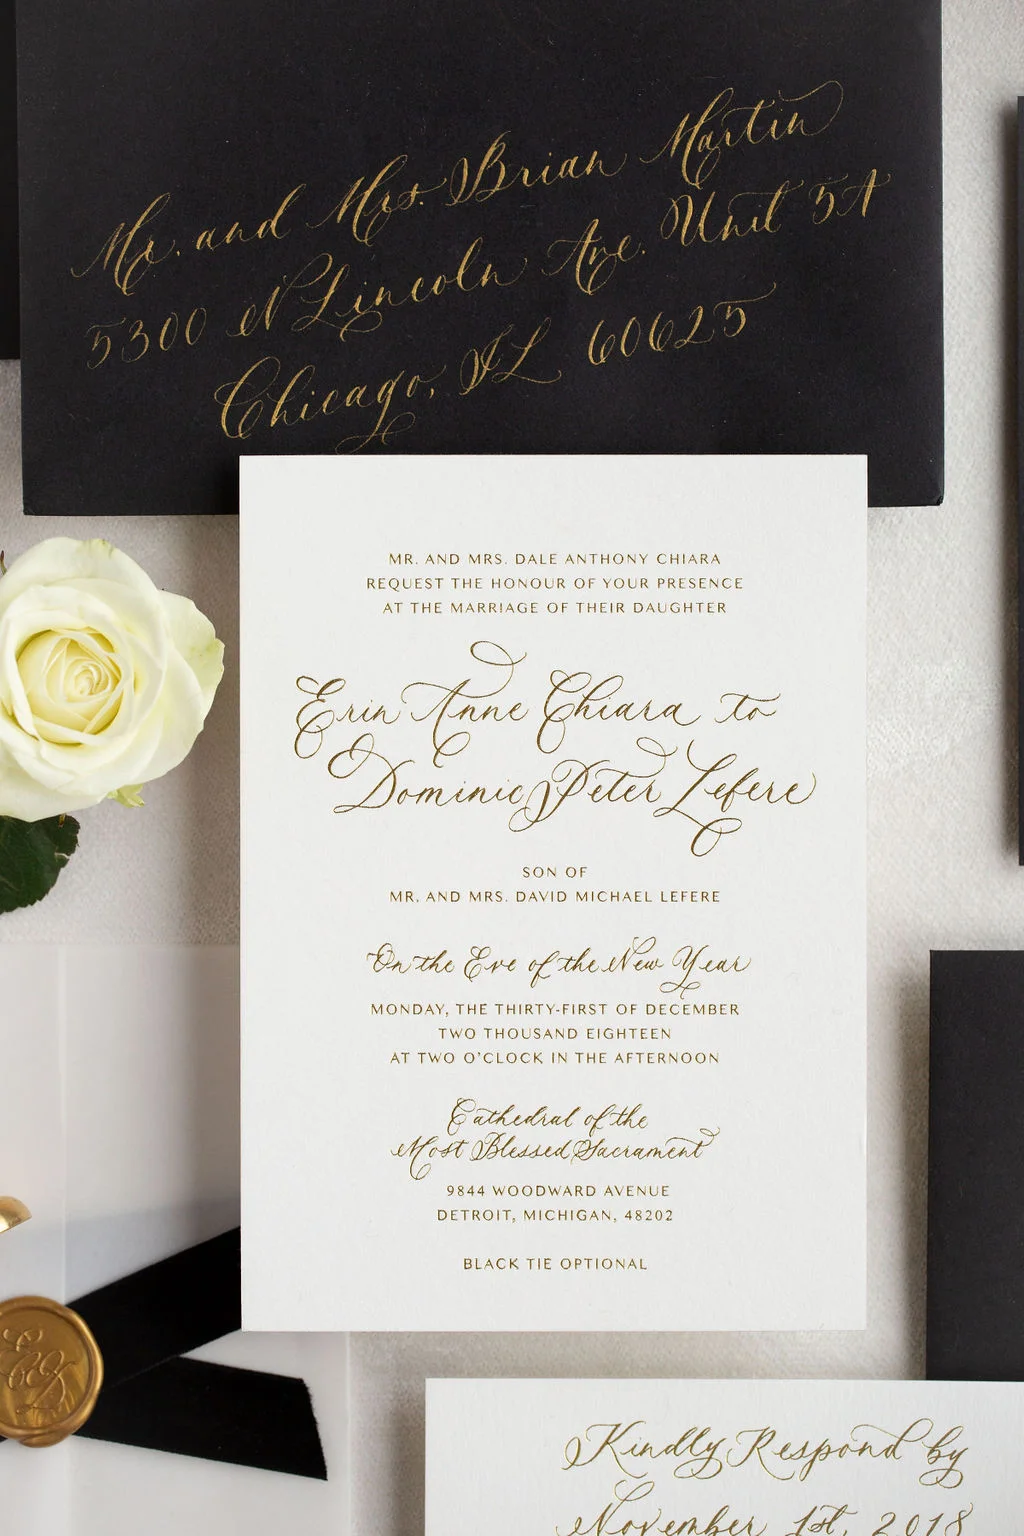 Mr. and Mrs. Brian Martin
5300 N Lincoln Ave. Unit 5A
Chicago, IL 60625
MR. AND MRS. DALE ANTHONY CHIARA
REQUEST THE HONOUR OF YOUR PRESENCE
AT THE MARRIAGE OF THEIR DAUGHTER
Erin Anne Chiara to
Dominic Peter Lefere
SON OF
MR. AND MRS. DAVID MICHAEL LEFERE
On the Eve of the New Year
MONDAY, THE THIRTY-FIRST OF DECEMBER
TWO THOUSAND EIGHTEEN
AT TWO O'CLOCK IN THE AFTERNOON
Cathedral of the
Most Blessed Sacrament
9844 WOODWARD AVENUE
DETROIT, MICHIGAN, 48202
BLACK TIE OPTIONAL
Kindly Respond by
November 1st, 2018